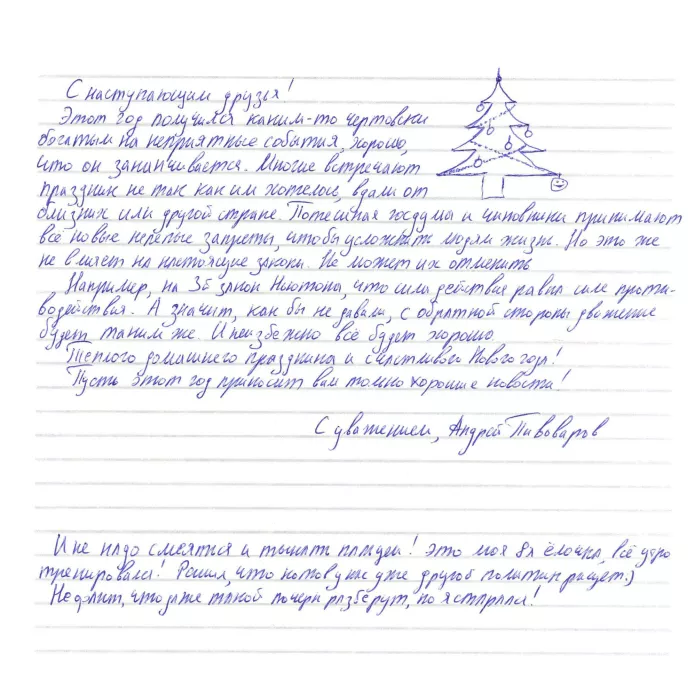 С наступающим друзья!
Этот год получился каким-то чертовски
богатым на неприятные события, хорошо,
что он заканчивается. Многие встречают
праздник не так как им хотелось, вдали от
близких или другой стране. Потешная госдума и чиновники принимают
всё новые нелепые запреты, чтобы усложнить людям жизнь. Но это же
не влияет на настоящие законы. Не может их отменить
Например, на 3й закон Ньютона, что сила действия равна силе проти-
водействия. А значит, как бы не давили, с обратной стороны движение
будет таким же. И неизбежно всё будет хорошо
Тёплого домашнего праздника и счастливого Нового года!
Пусть этот год приносит вам только хорошие новости!
С уважением, Андрей Пивоваров
И не надо смеятся и тыкать пальцем! Это моя 8я ёлочка, всё утро
тренировался! Решил, что котов у нас уже другой политик рисует:)
Не думал, что даже такой почерк разберут, но я старался!